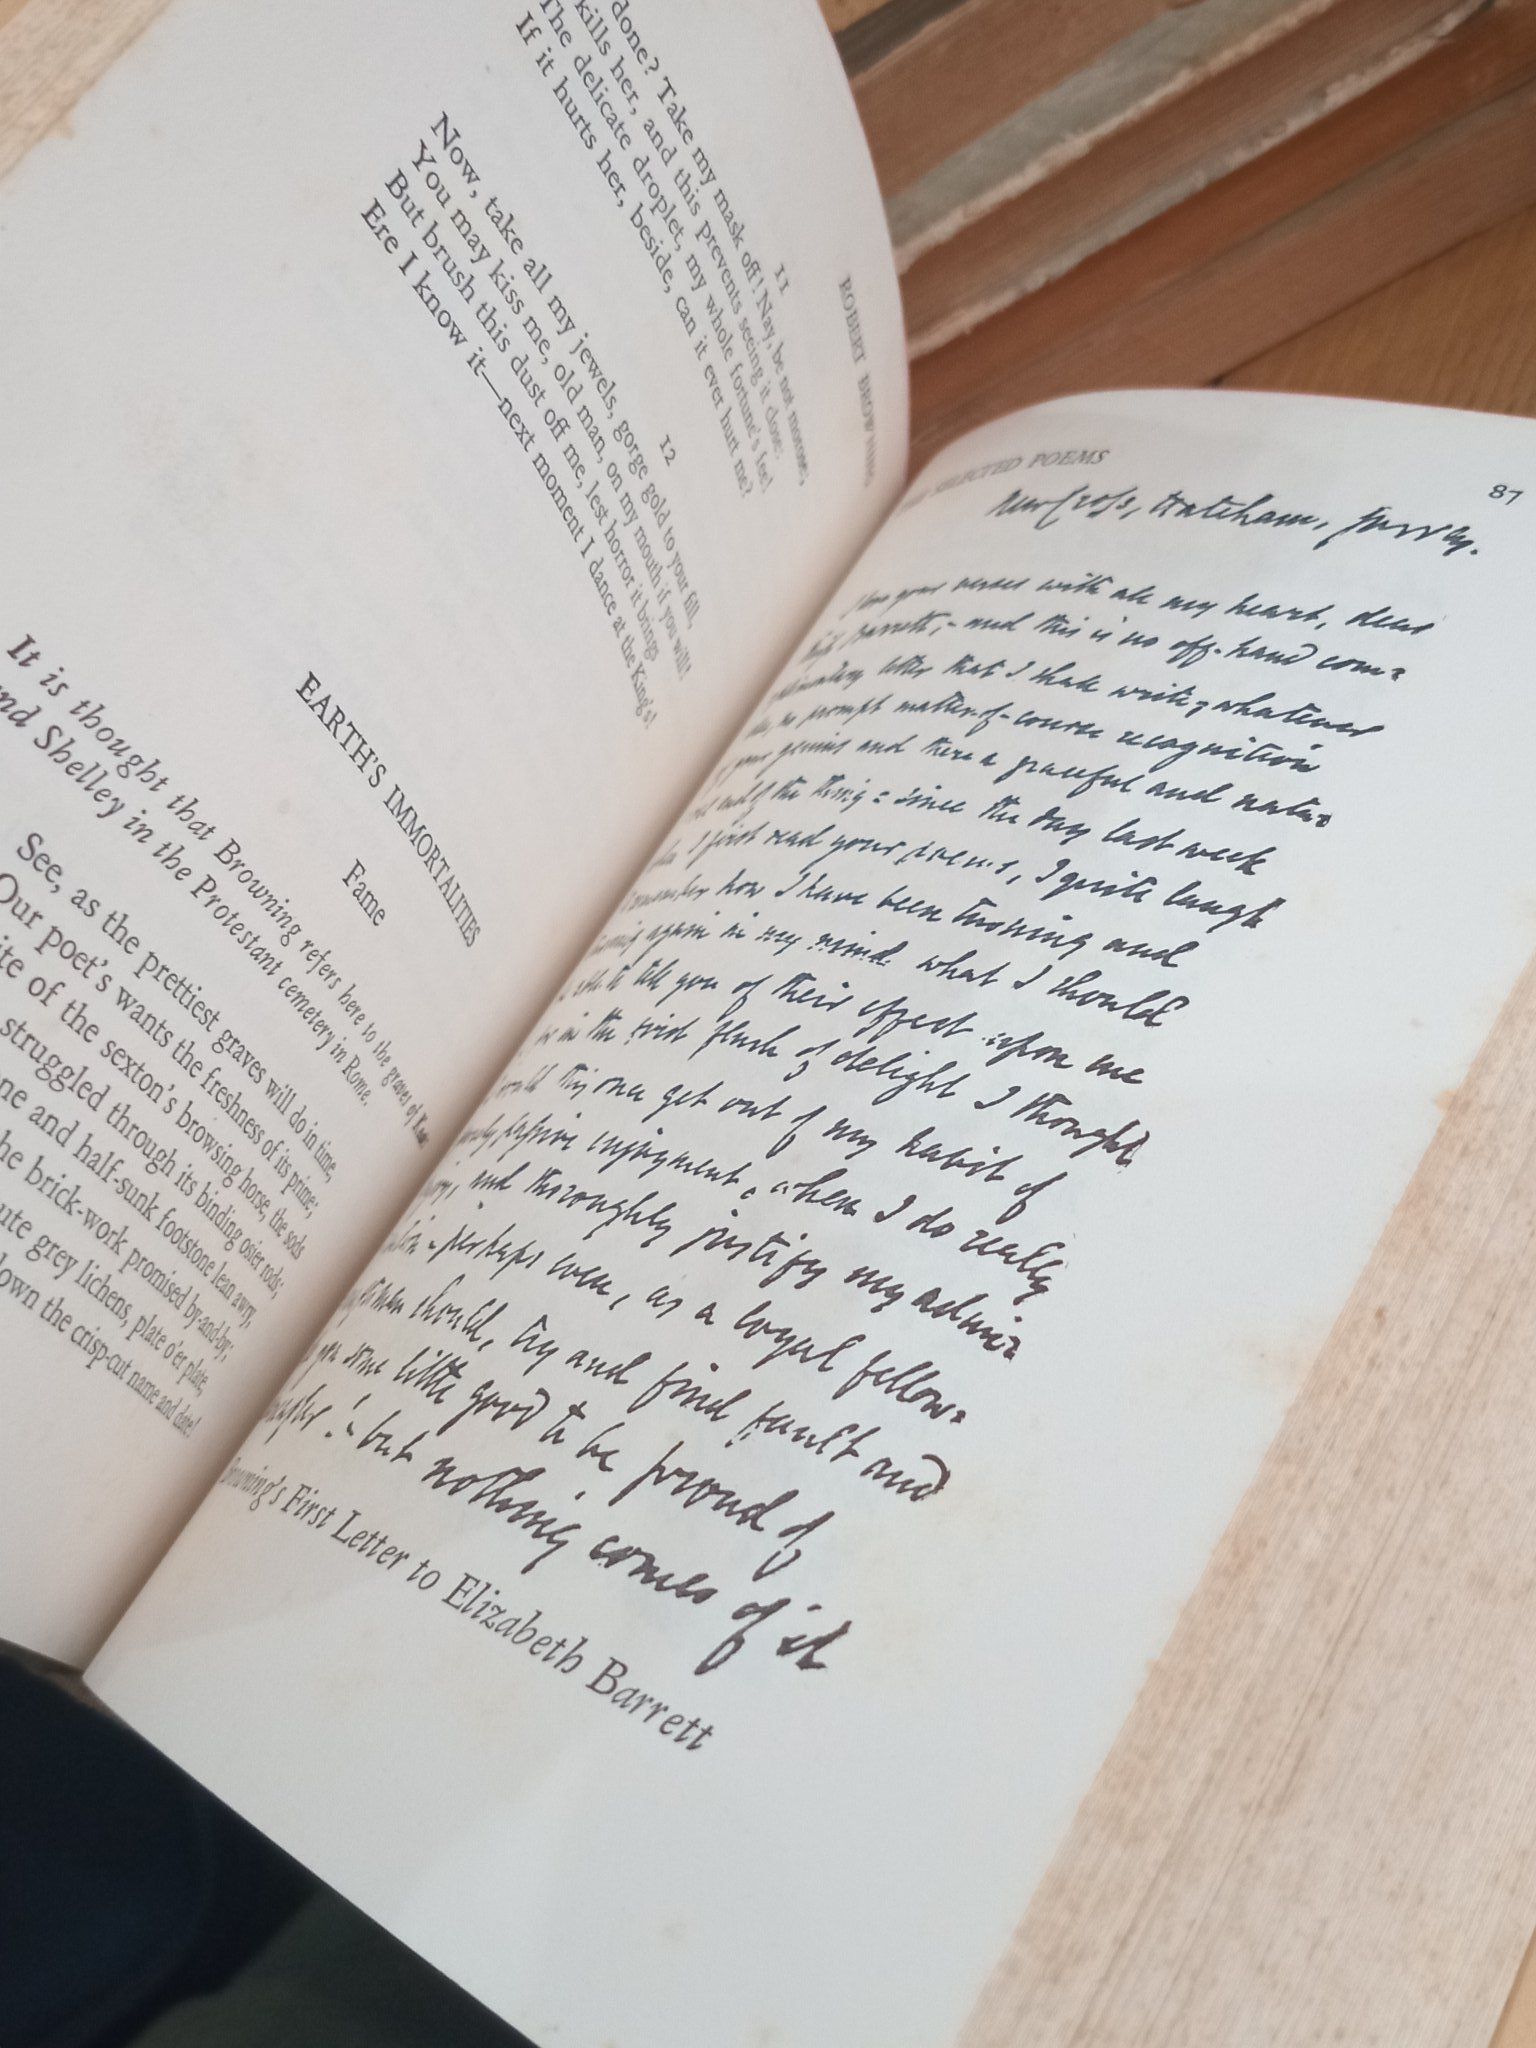 ROBERT BROWNING
done? Take my mask off! Nay, be not morose;
kills her, and this prevents seeing it close:
The delicate droplet, my whole fortune's fee!
If it hurts her, beside, can it ever hurt me?
12
Now, take all my jewels, gorge gold to your fill,
You may kiss me, old man, on my mouth if you will!
But brush this dust off me, lest horror it brings
Ere I know it—next moment I dance at the King's!
EARTH'S IMMORTALITIES
Fame
It is thought that Browning refers here to the graves of
and Shelley in the Protestant cemetery in Rome.
See, as the prettiest graves will do in time,
Our poet's wants the freshness of its prime;
of the sexton's browsing horse, the sods
struggled through its binding osier rods;
and half-sunk footstone lean awry,
the brick-work promised by-and-by;
grey lichens, plate o'er plate,
down the crisp-cut name and date!
SELECTED POEMS 87
New Cross, Hatcham, Surrey.
I love your verses with all my heart, dear
Miss Barrett,- and this is no off-hand com=
letter that I shall write,- whatever
else, no prompt matter-of-course recognition
of your genius and there a graceful and natu=
end of the thing: since the day last week
when I first read your poems, I quite laugh
remember how I have been turning and
turning again in my mind what I should
be able to tell you of their effect upon me
for in the first flush of delight I thought
I would this once get out of my habit of
purely passive enjoyment, when I do really
enjoy, and thoroughly justify my admi=
ration - perhaps even, as a loyal fellow=
craftsman should, try and find fault and
do you some little good to be proud of
! - but nothing comes of it
Browning's First Letter to Elizabeth Barrett